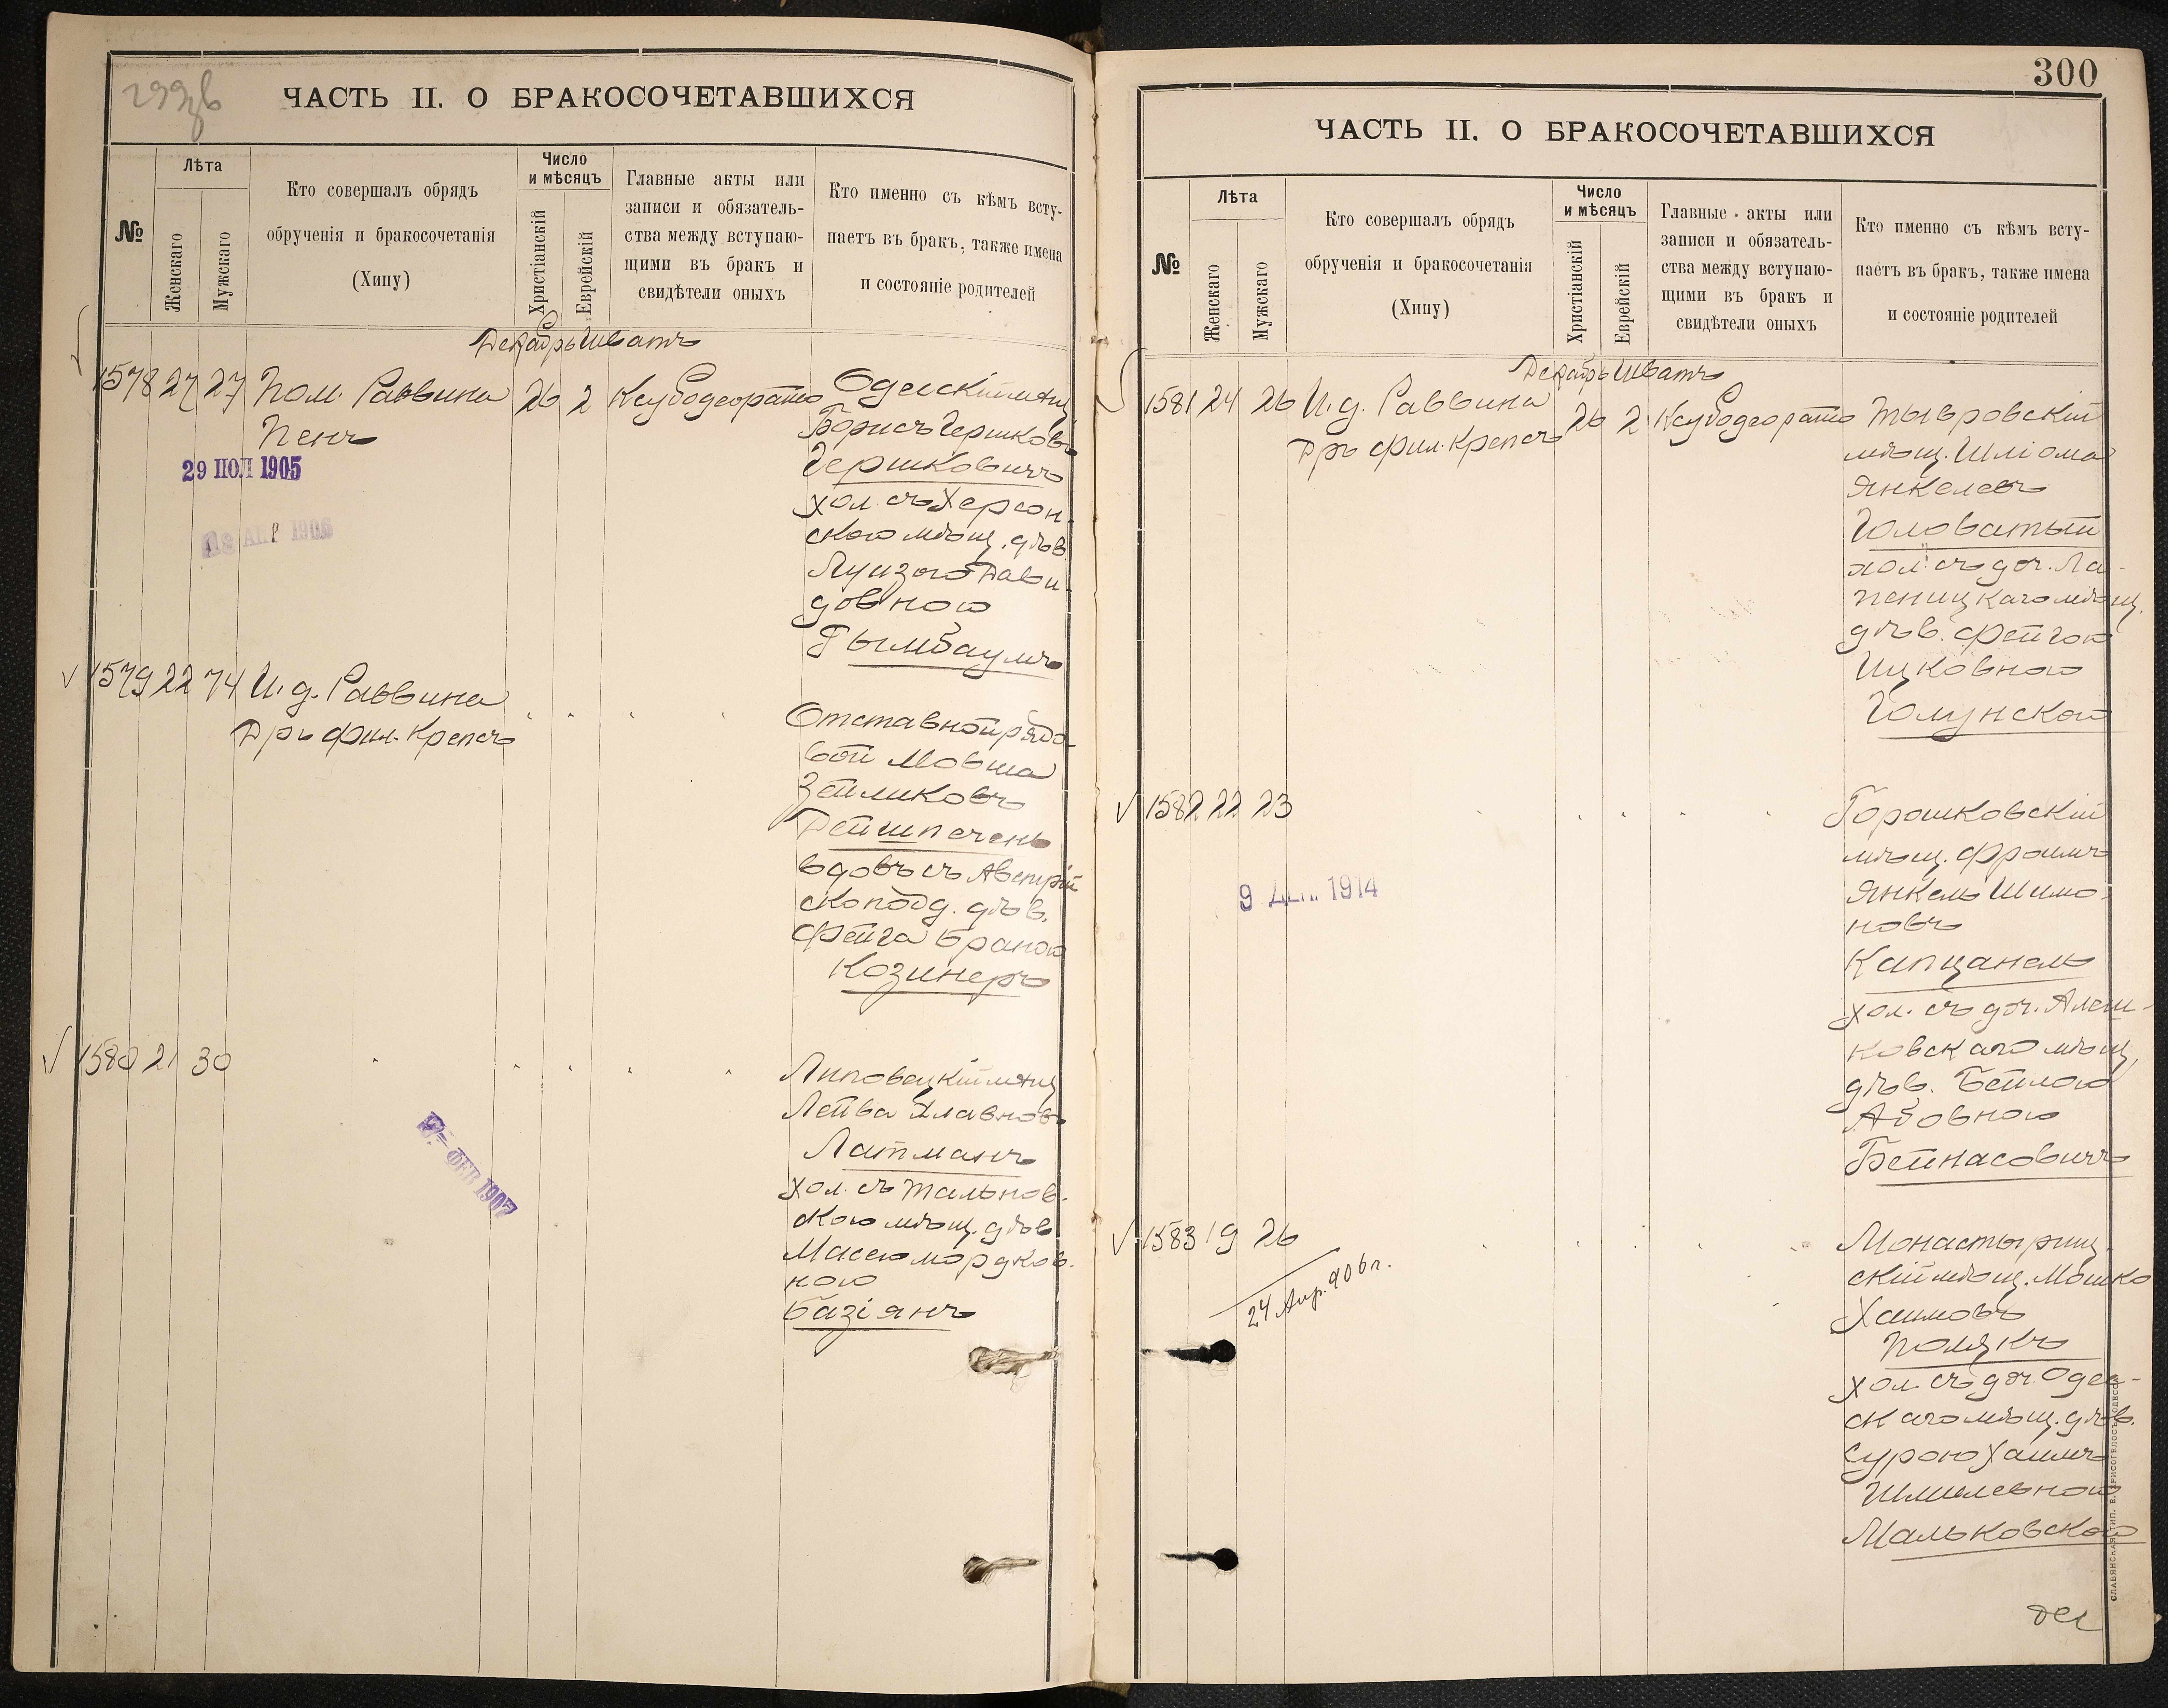 ЧАСТЬ II. О БРАКОСОЧЕТАВШИХСЯ
№
Лѣта
Женскаго
Мужскаго
Кто совершалъ обрядъ
обрученія и бракосочетанія
(Хипу)
Число
и мѣсяцъ
Христіанскій
Еврейскій
Главные акты или
записи и обязатель-
ства между вступаю-
щими въ бракъ и
свидѣтели оныхъ
Кто именно съ кѣмъ всту-
паетъ въ бракъ, также имена
и состояніе родителей
Декабрь Шватъ
1578 27 27 Пом. Раввина 26 2
Пенъ
29 ІЮЛ 1905
18 АПР 1906
Одесскій мѣщ
Борисъ Гершковъ
Гершковичъ
хол. съ Херсон-
скою мѣщ. дѣв.
Луизою Дави-
довною
Гымбаумъ
1579 22 74 И. д. Раввина
Дръ фил. Крепсъ
Отставной рядо-
вой Мовша
Зейликовъ
Дейшпечень
вдовъ съ Австрій
скопод. дѣв.
Фейга Браною
Козинеръ
1580 21 30
Липовецкій мѣщ
Лейва Хлавновъ
Лайтманъ
хол. съ Тальнов-
скою мѣщ. дѣв
Масею Мордков-
ною
Базіянъ
ФЕВ 1907
300
ЧАСТЬ II. О БРАКОСОЧЕТАВШИХСЯ
№
Лѣта
Женскаго
Мужскаго
Кто совершалъ обрядъ
обрученія и бракосочетанія
(Хипу)
Число
и мѣсяцъ
Христіанскій
Еврейскій
Главные акты или
записи и обязатель-
ства между вступаю-
щими въ бракъ и
свидѣтели оныхъ
Кто именно съ кѣмъ всту-
паетъ въ бракъ, также имена
и состояніе родителей
Декабрь Шватъ
1581 24 26 И. д. Раввина 26 2
Дръ фил. Крепсъ
Тывровскій
мѣщ. Шліома
Янкелевъ
Головатый
хол. съ доч. Ла-
пеницкаго мѣщ.
дѣв. Фейгою
Ицковною
Голунскою
1582 22 23
9 ДЕК. 1914
Горошковскій
мѣщ. Фроимъ
Янкель Шимо-
новъ
Капцанель
хол. съ доч. Алеш-
ковскаго мѣщ.
дѣв. Бейлою
Абовною
Бейнасовичъ
1583 19 26
24 Апр. 906 г.
Монастырищ-
скій мѣщ. Мошко
Хаимовъ
Полякъ
хол. съ доч. Одес-
скаго мѣщ. дѣв.
Сурою Хаимъ
Шмилевною
Мальковскою